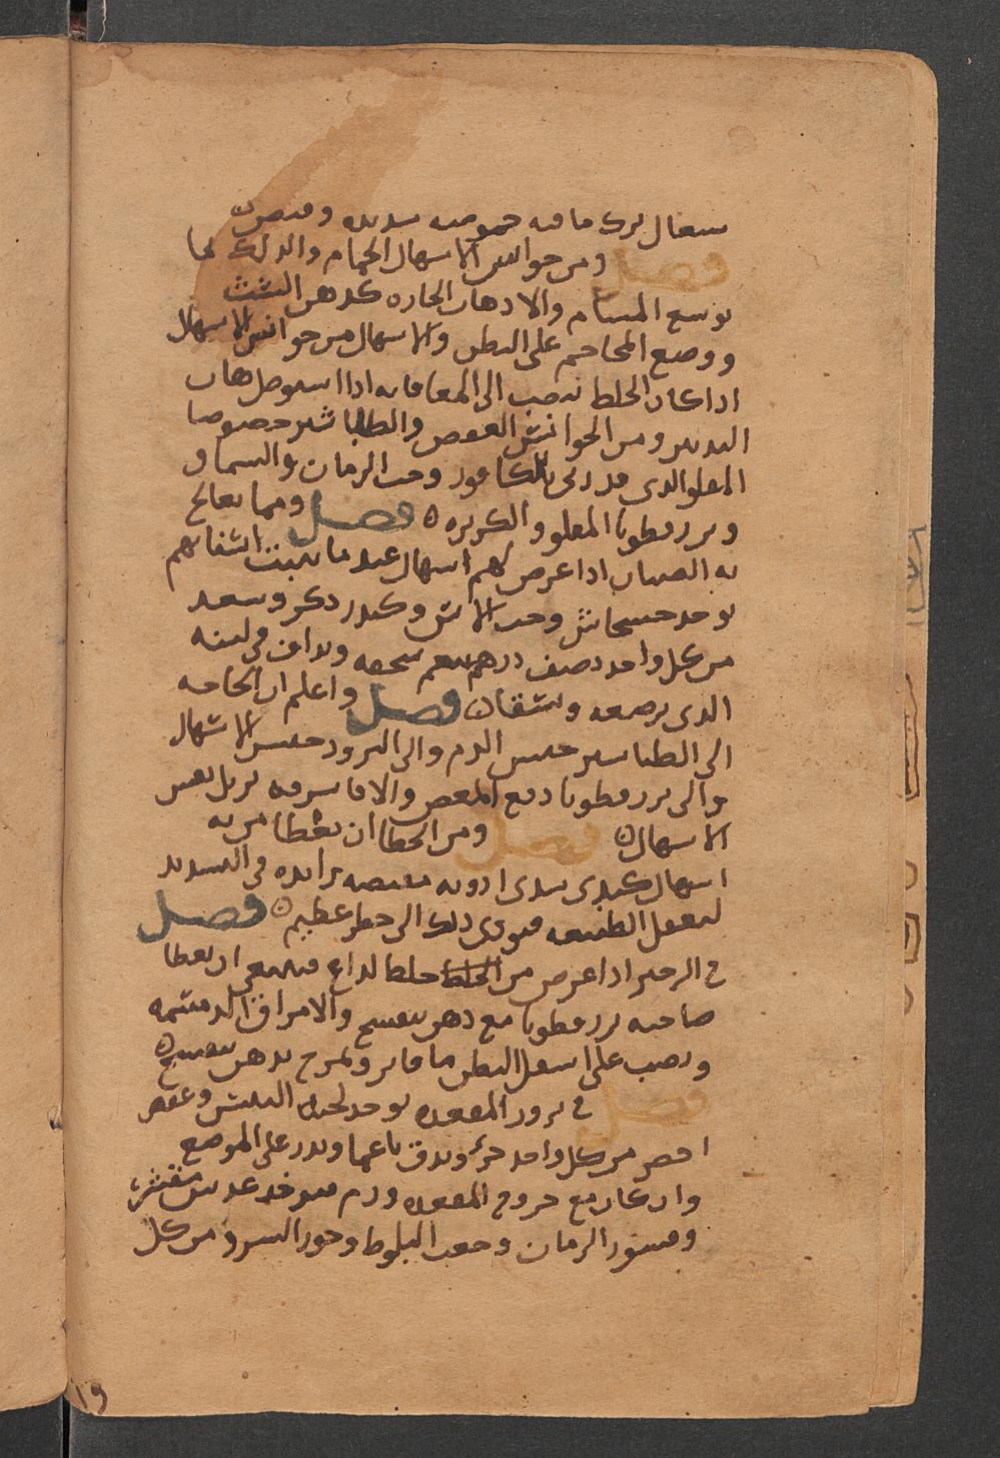 سعال ترك ما فيه حموضه شديده وقبض
فصل ومن حوابس الاسهال الحمام والدلك لما
توسع المسام والادهان الحاره كدهن الشبث
ووضع المحاجم على البطن والاسهال من حوابس الاسهال
اذا كان الخلط ينصب الى المعا فانه اذا استوصل هان
التدبير ومن الحوابس العفص والطباشير خصوصا
المقلو الذى قد ربى بالكافور وحب الرمان والسماق
وبزر قطونا المقلو والكزبره فصل ومما يعالج
به الصبيان اذا عرض لهم اسهال عندما تنبت اسنانهم
يوخذ خشخاش وحب الاس وكندر ذكر وسعد
من كل واحد نصف درهم ينعم سحقه ويداف فى لبنه
الذى يرضعه ويسقا فصل واعلم ان الحاجه
الى الطباشير حبس الدم والى البزور حبس الاسهال
والى بزر قطونا دفع المغص والاقا
الاسهال فصل ومن الخطا ان يعطا من به
اسهال كبدى سددى ادويه مقبضه زايده فى التسديد
ليعقل الطبيعه فيودى ذلك الى خطر عظيم فصل
فى الزحير اذا عرض من الخلط خلط لداع فينبغى ان يعطا
صاحبه بزر قطونا مع دهن بنفسج والامراق الدسمه
ويصب على اسفل البطن ما فاتر ويمرخ بدهن بنفسج
فصل فى بروز المقعده يوخذ لحيه التيس وعفص
اخضر من كل واحد جزؤ ويدق ناعما ويذر على الموضع
وان كان مع خروج المقعده ورم فيوخذ عدس مقشر
وقشور الرمان وجفت البلوط وجوز السرو من كل
19